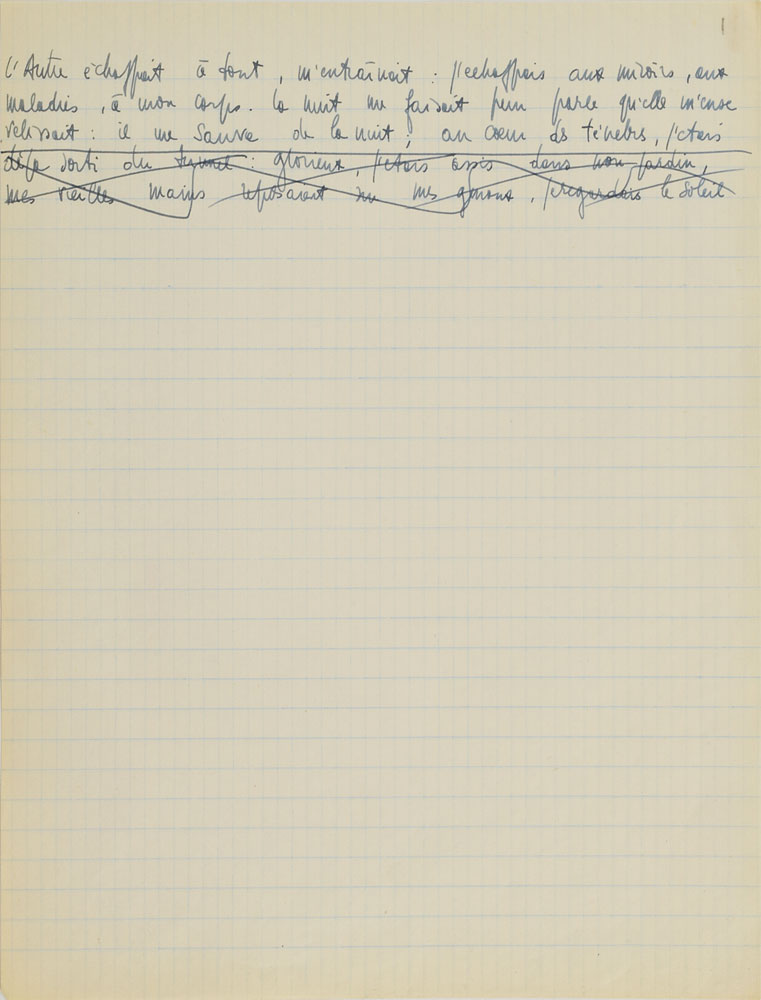 1
l'Autre échappait à tout, m'entraînait : j'échappais aux miroirs, aux
maladies, à mon corps. La nuit me faisait peur parce qu'elle m'ense
velissait : il me sauva de la nuit ; au cœur des ténèbres, j'étais
déjà sorti du tunnel : glorieux, j'étais assis dans mon jardin,
mes vieilles mains reposaient sur mes genoux, je regardais le soleil